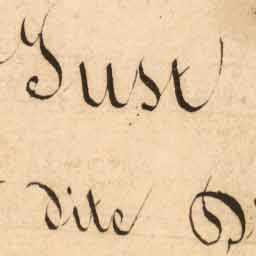 Just
dite D